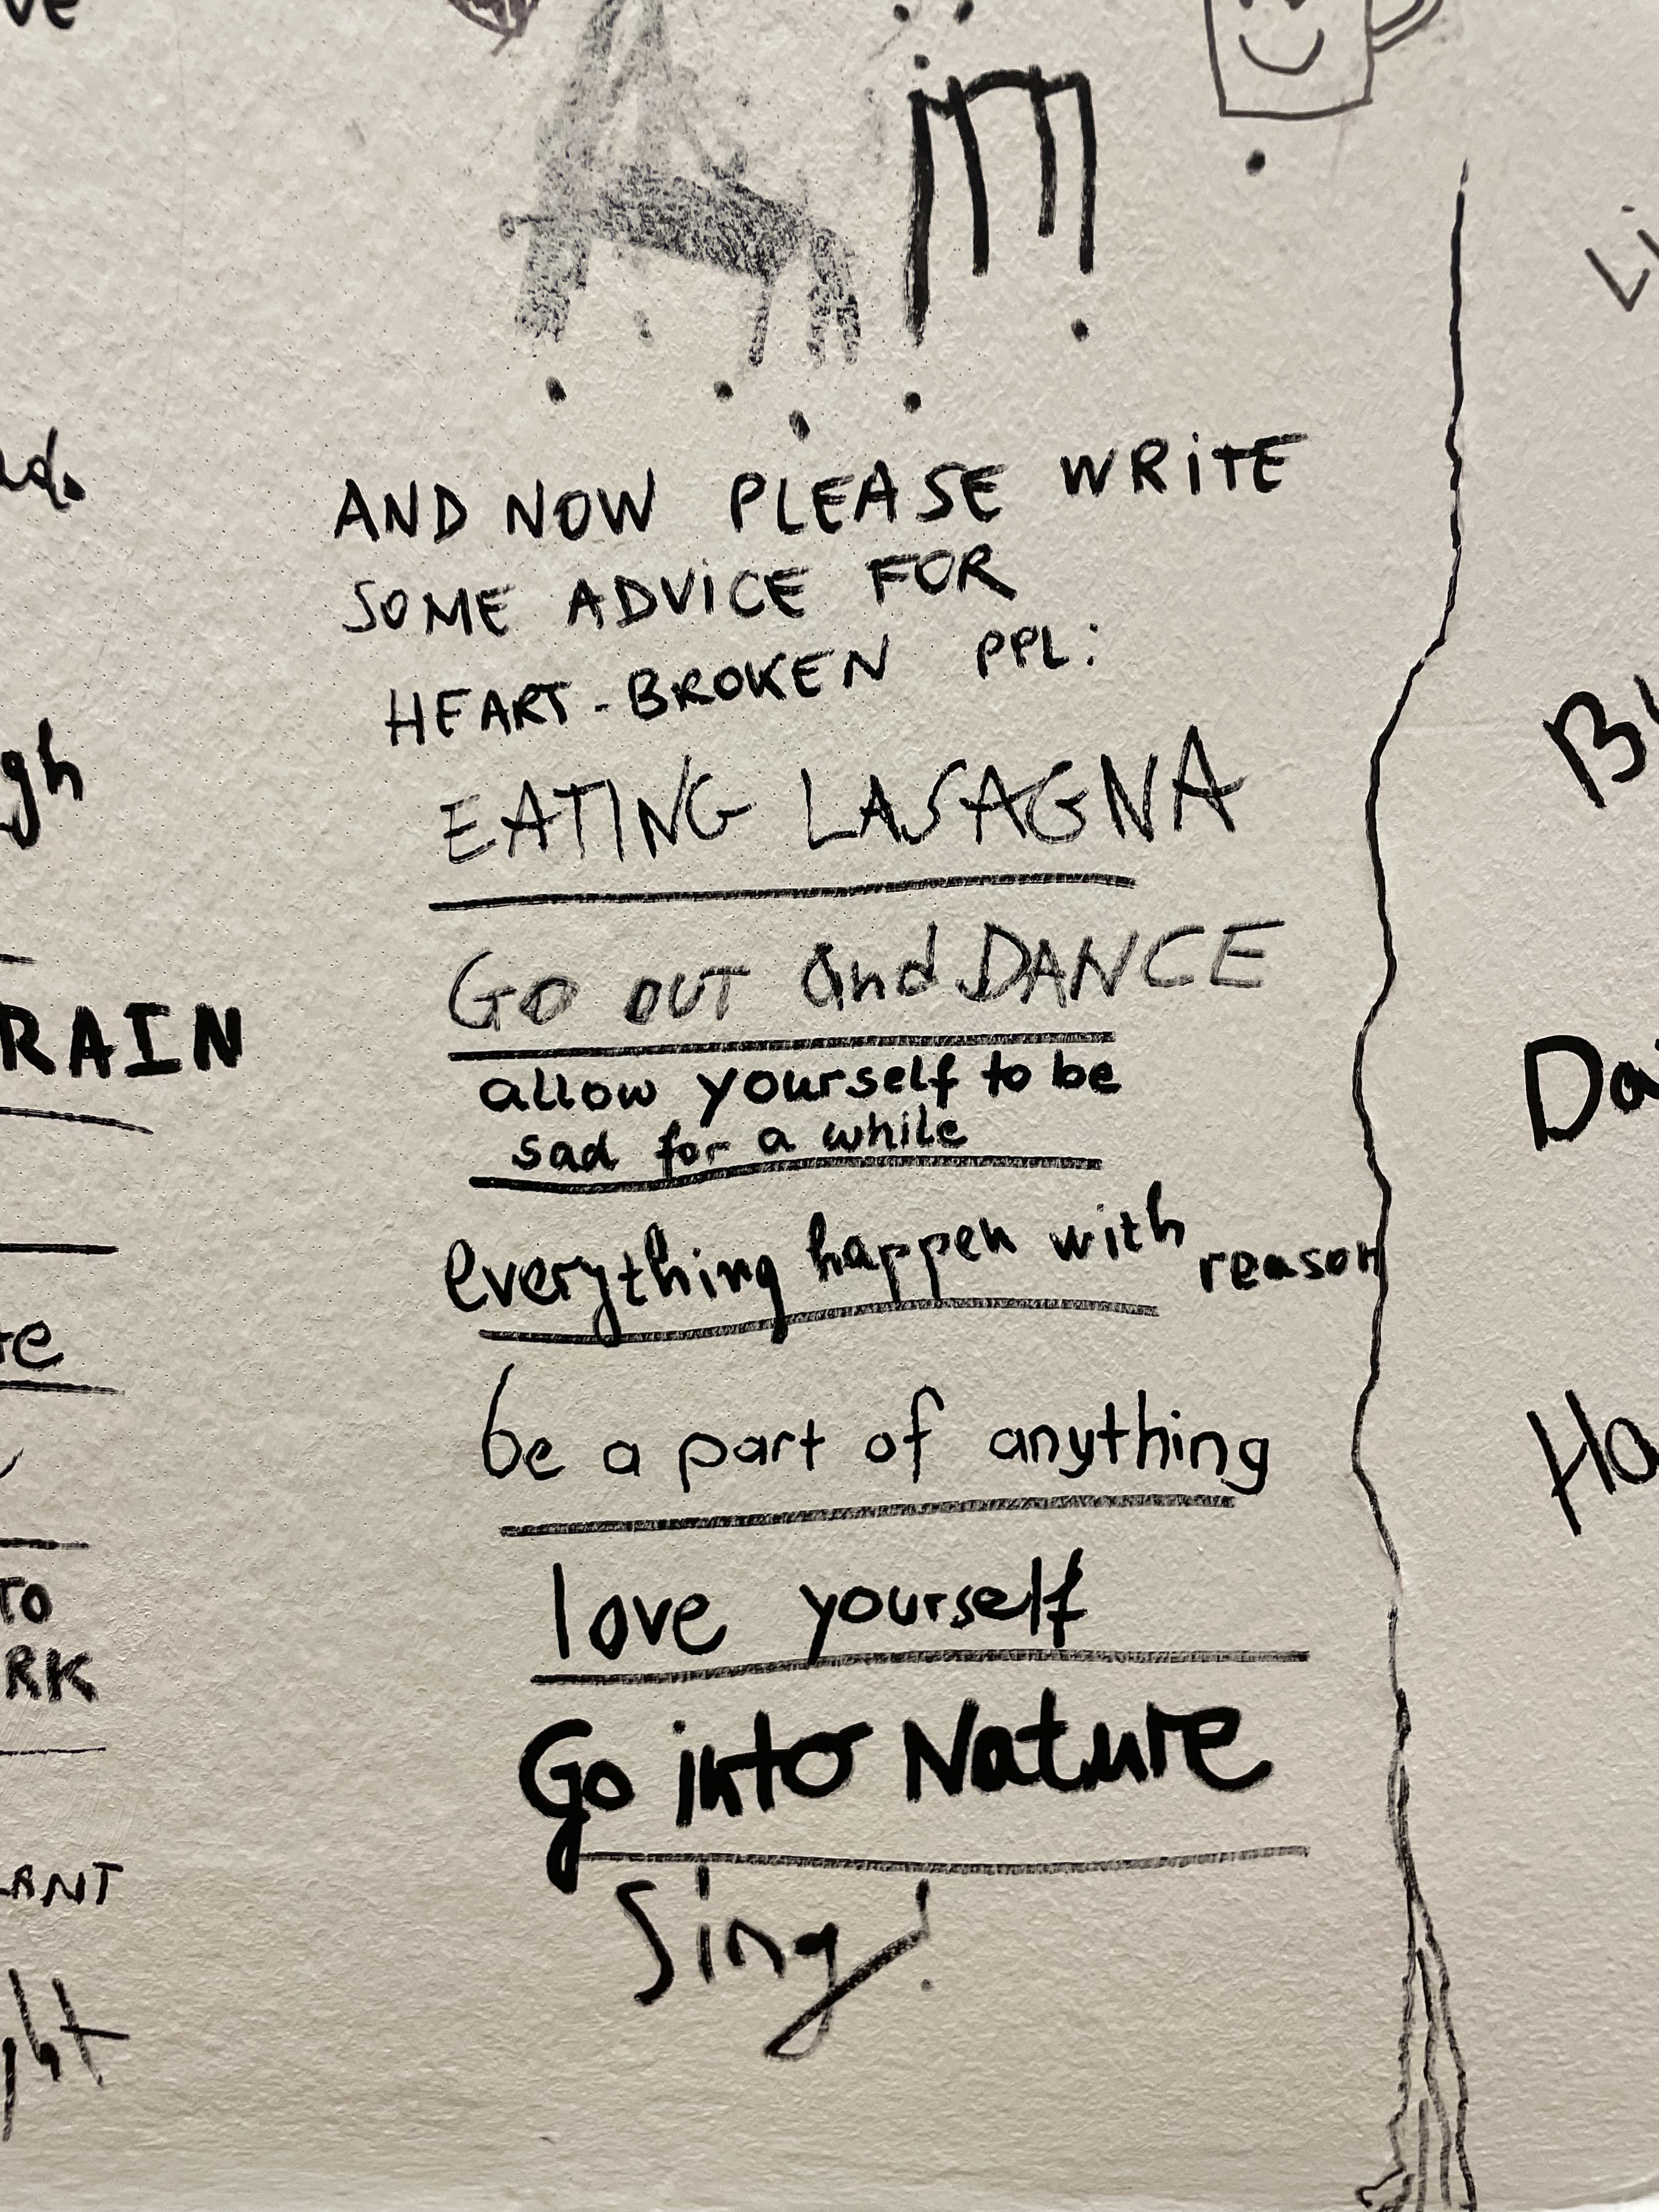 AND NOW PLEASE WRiTE
SOME ADViCE FOR
HEART-BROKEN PPL:
EATING LASAGNA
GO OUT and DANCE
allow yourself to be
sad for a while
everything happen with reason
be a part of anything
love yourself
Go into Nature
Sing!
RAIN
TO